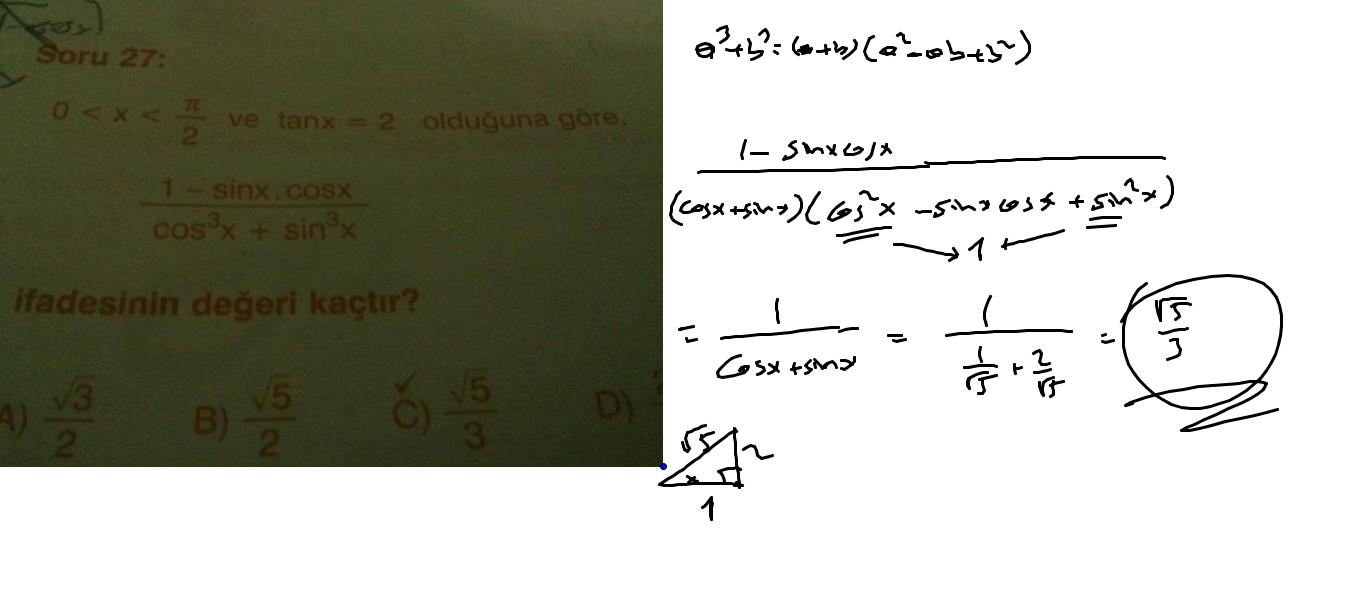 cosx)
Soru 27:
0 < x < π/2 ve tanx = 2 olduğuna göre,
1 – sinx.cosx
cos³x + sin³x
ifadesinin değeri kaçtır?
A) √3/2 B) √5/2 C) √5/3 D)
a³+b³=(a+b)(a²-ab+b²)
1 - sinxcosx
(cosx+sinx)(cos²x -sinxcosx + sin²x)
1
= 1/(cosx+sinx) = 1/(1/√5 + 2/√5) = √5/3
√5 2
x
1